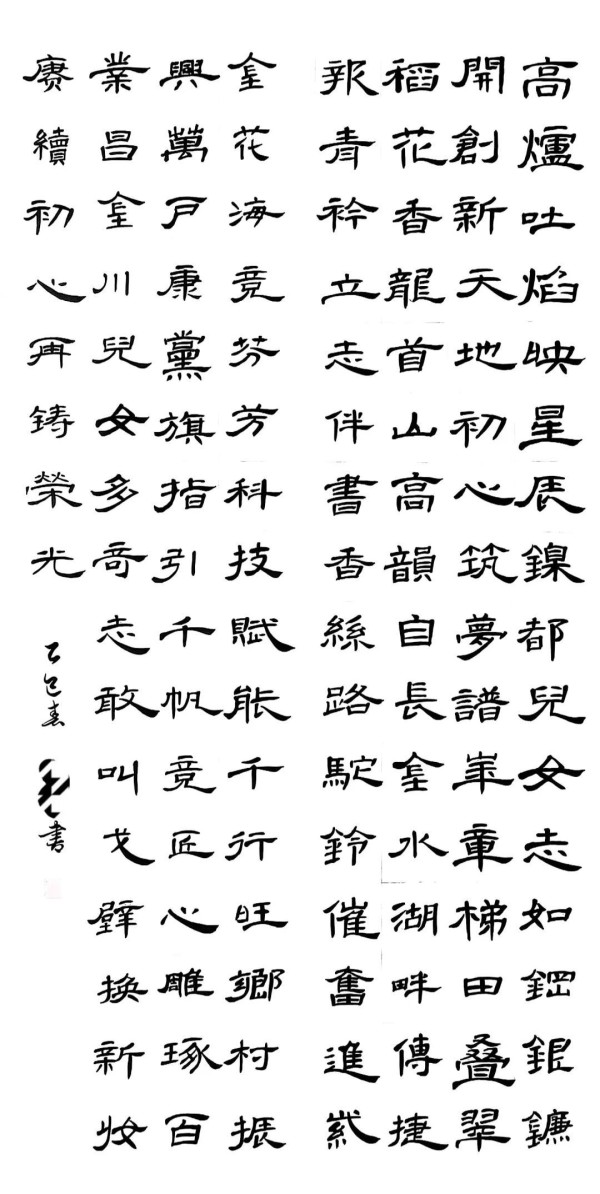 高爐吐焰映星辰鎳都兒女志如鋼銀鐮
開創新天地初心筑夢譜華章梯田叠翠
稻花香龍首山高韻自長金水湖畔傳捷
報青衿立志伴書香絲路駝鈴催奮進紫
金花海竞芬芳科技賦能千行旺鄉村振
興萬戶康黨旗指引千帆竞匠心雕琢百
業昌金川兒女多奇志敢叫戈壁換新妝
賡續初心再鑄榮光
乙巳春 书